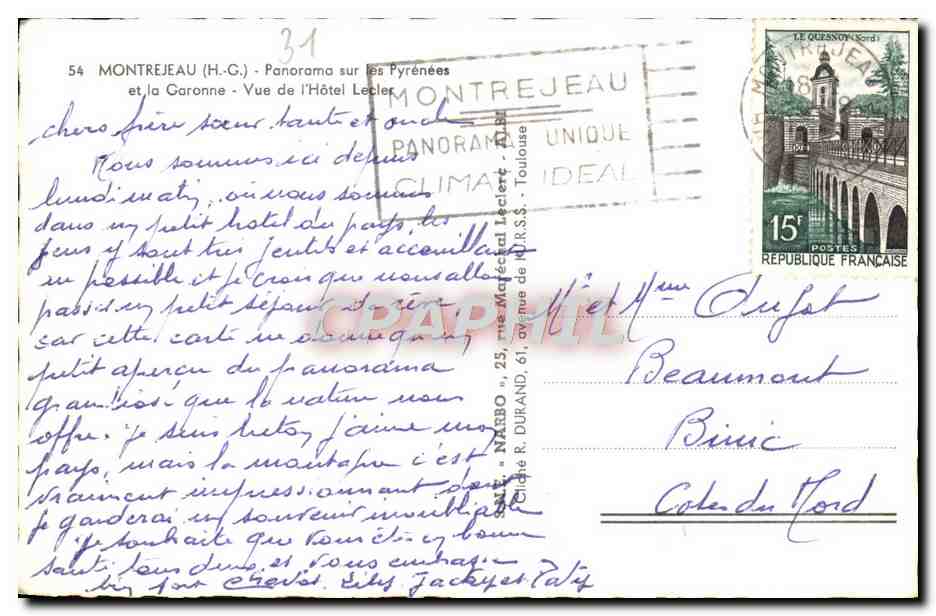 31
54 MONTREJEAU (H.-G.) - Panorama sur les Pyrénées
et la Garonne - Vue de l'Hôtel Lecler
MONTREJEAU
PANORAMA UNIQUE
CLIMAT IDEAL
MONTREJEAU
LE QUESNOY (Nord)
15F
POSTES
RÉPUBLIQUE FRANÇAISE
chers frère sœur tante et oncle
Nous sommes ici depuis
lundi matin, où nous sommes
dans un petit hotel du pays, les
gens y sont très gentils et accueillants
au possible et je crois que nous allons
passer un petit séjour de rêve
car cette carte ne donne qu'un
petit aperçu du panorama
grandiose que la nature nous
offre. je suis breton j'aime mon
pays, mais la montagne c'est
vraiment impressionnant dont
je garderai un souvenir inoubliable
je souhaite que vous êtes en bonne
santé tous deux et vous embrasse
bien fort Jacky et
S.N.E. « NARBO », 25, rue Maréchal Leclerc - ALBI
Cliché R. DURAND, 61, avenue de l'U.R.S.S. - Toulouse
CPAPHIL
Mr et Mme
Beaumont
Binic
Cotes du Nord